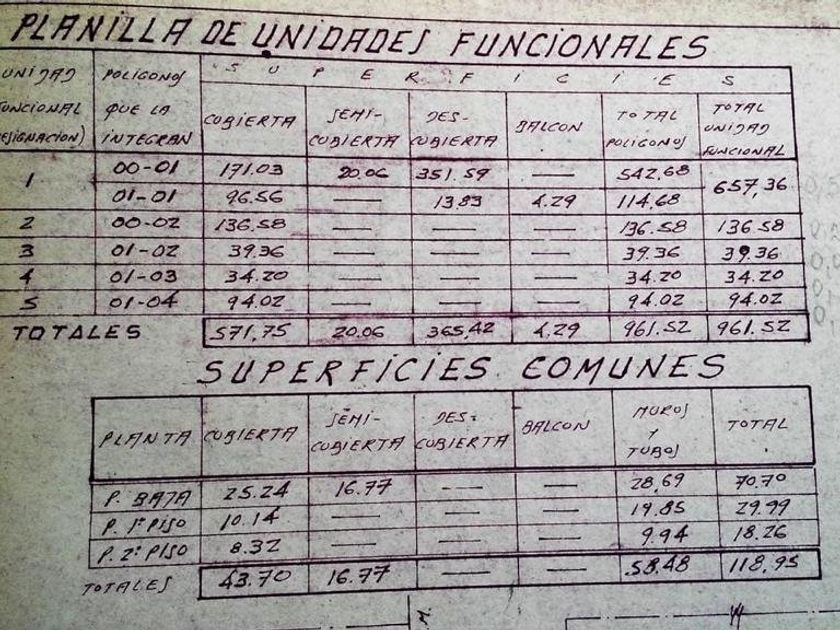 PLANILLA DE UNIDADES FUNCIONALES
UNIDAD FUNCIONAL DESIGNACION) POLIGONOS QUE LA INTEGRAN SUPERFICIES
CUBIERTA SEMI-CUBIERTA DES-CUBIERTA BALCON TOTAL POLIGONOS TOTAL UNIDAD FUNCIONAL
1 00-01 171.03 20.06 351.59 — 542.68 657,36
01-01 96.56 — 13.83 4.29 114.68
2 00-02 136.58 — — — 136.58 136.58
3 01-02 39.36 — — — 39.36 39.36
4 01-03 34.20 — — — 34.20 34.20
5 01-04 94.02 — — — 94.02 94.02
TOTALES 571,75 20.06 365,42 4.29 961.52 961.52
SUPERFICIES COMUNES
PLANTA CUBIERTA SEMI-CUBIERTA DES-CUBIERTA BALCON MUROS Y TUBOS TOTAL
P. BAJA 25.24 16.77 — — 28,69 70.70
P. 1º PISO 10.14 19.85 29.99
P. 2º PISO 8.32 9.94 18.26
TOTALES 43.70 16.77 — — 58.48 118.95
M.